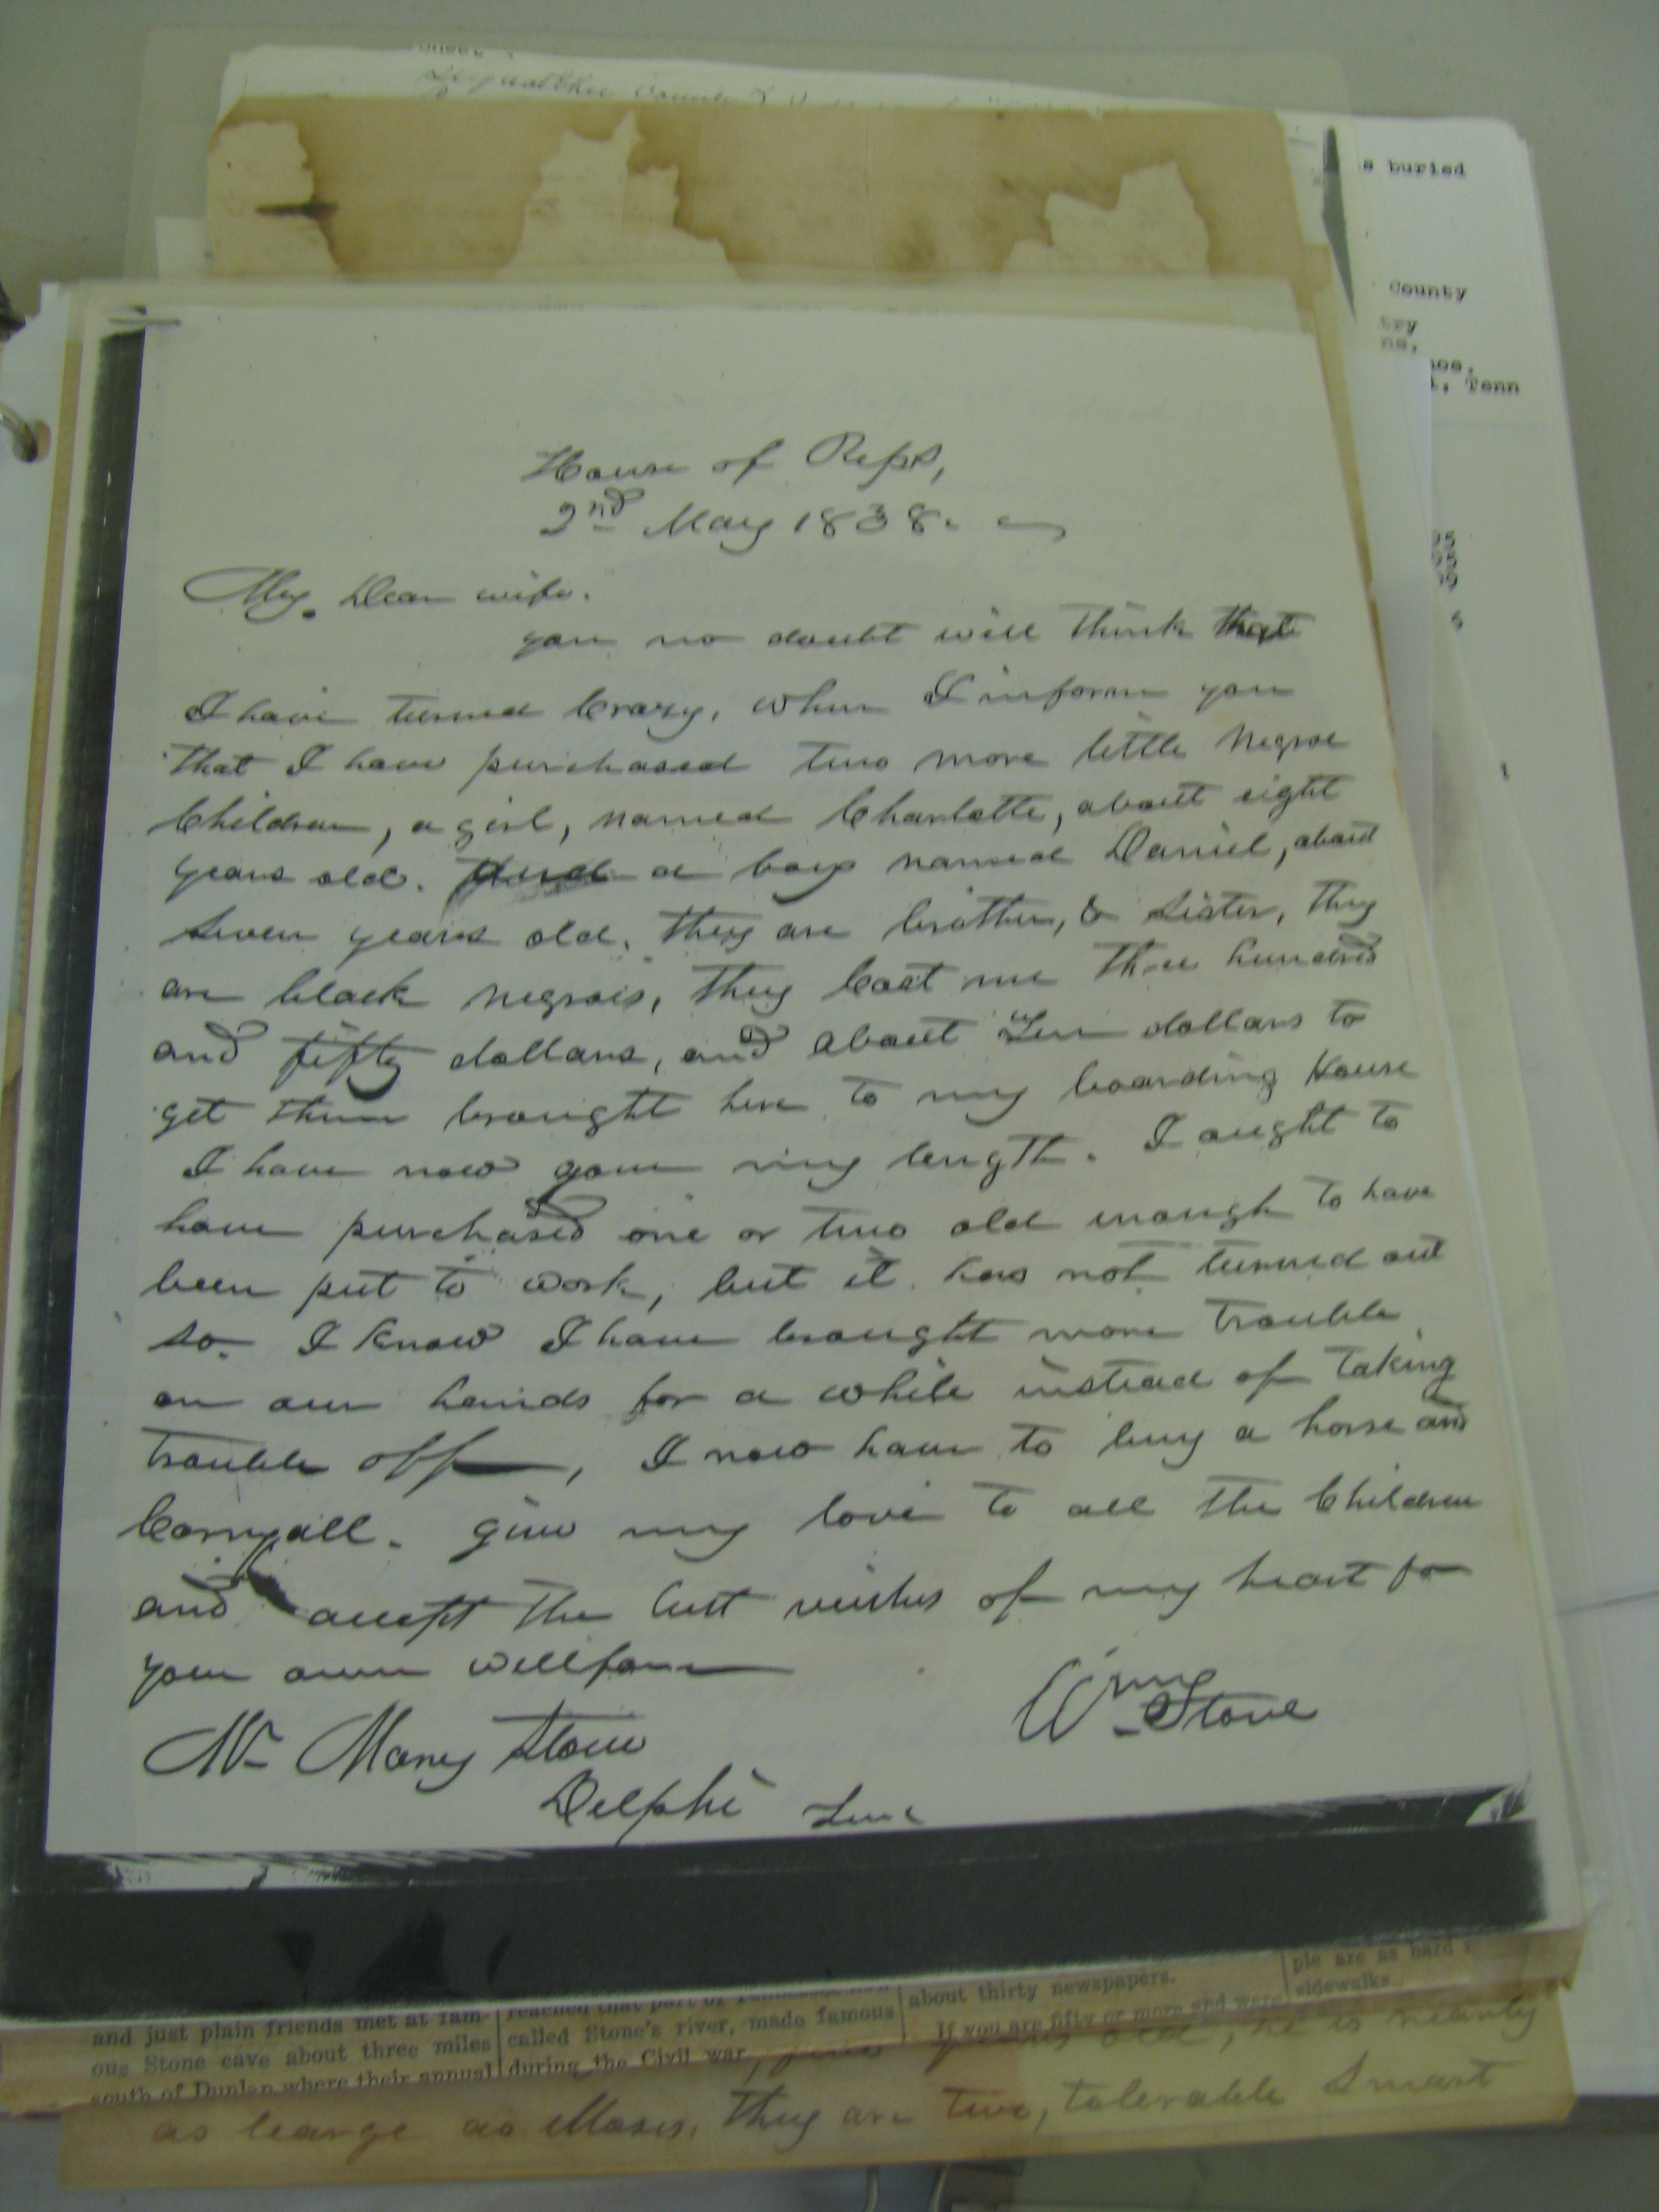 Sheet
Sequatchie County
s buried
County
try
ns,
Tenn
95
95
6
House of Reps,
2nd May 1838.
My Dear wife.
you no doubt will think that
I have turned Crazy, when I inform you
that I have purchased two more little Negroe
Children, a girl, named Charlotte, about eight
years old. and a boy named Daniel, about
seven years old. they are brother, & sister, they
are black negrois, they Cost me three hundred
and fifty dollars, and about Ten dollars to
get them brought here to my boarding House
I have now gone my length. I aught to
have purchased one or two old enough to have
been put to work, but it has not turned out
so. I know I have brought more trouble
on our hands for a while instead of taking
trouble off, I now have to buy a horse and
Carryall. give my love to all the Children
and accept the best wishes of my heart for
your own wellfare
Wm Stone
Mrs Mary Stone
Delphi Tenn
and just plain friends met at fam-
ous Stone cave about three miles
south of Dunlap where their annual
reached that part of Tennessee now
called Stone's river, made famous
during the Civil war
about thirty newspapers.
If you are fifty or more and were
ple are as hard
sidewalks.
years old, he is nearly
as learge as Moses, they are two, tolerable Smart